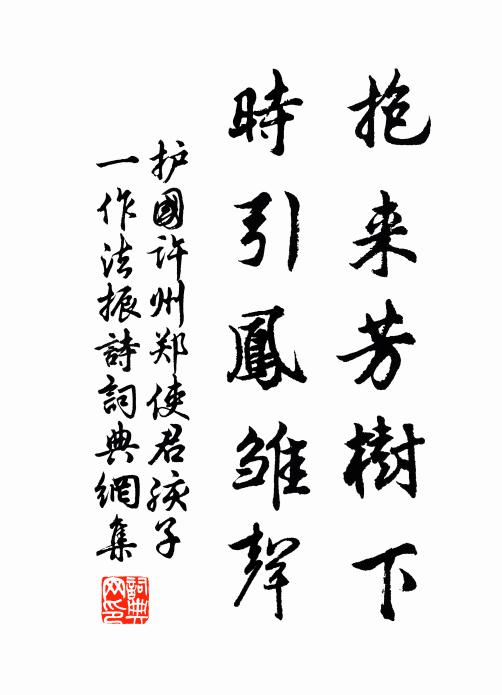 抱来芳樹下
時引鳳雏聲
护國许州郑使君孩子
一作法振詩詞典網集
詞典网印